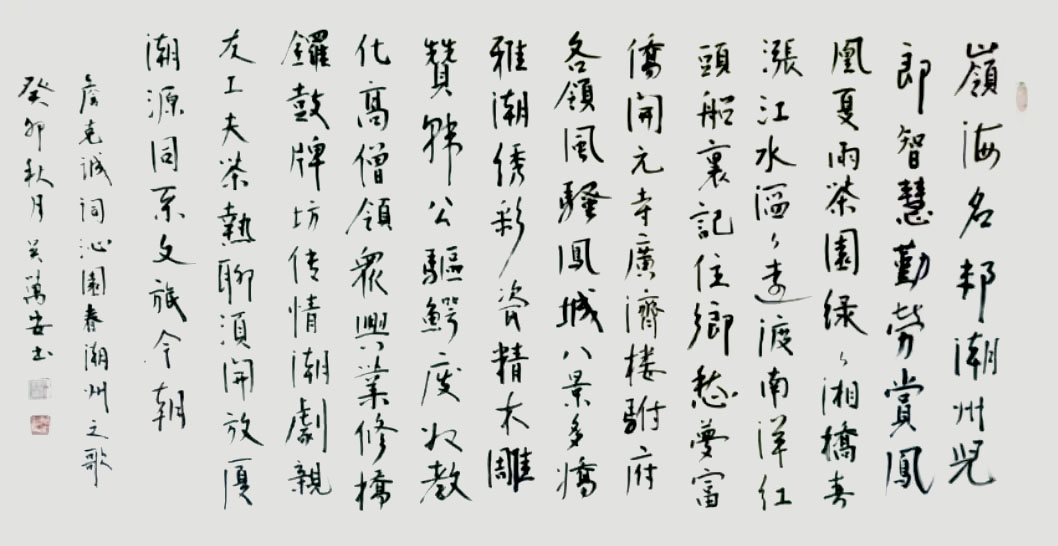 嶺海名邦潮州兒
郎智慧勤勞賞鳳
凰夏雨茶園緑々湘橋春
漲江水滔々遠渡南洋紅
頭船裏記住鄉愁夢富
僑開元寺廣濟楼駙府
各領風騷鳳城八景多嬌
雅潮绣彩瓷精木雕
贊韩公驅鰐廢奴教
化高僧領眾興業修橋
鑼鼓牌坊传情潮劇親
友工夫茶熱聊須開放厦
潮源同系文旅今朝
詹克诚词沁園春潮州之歌
癸卯秋月吴萬安书